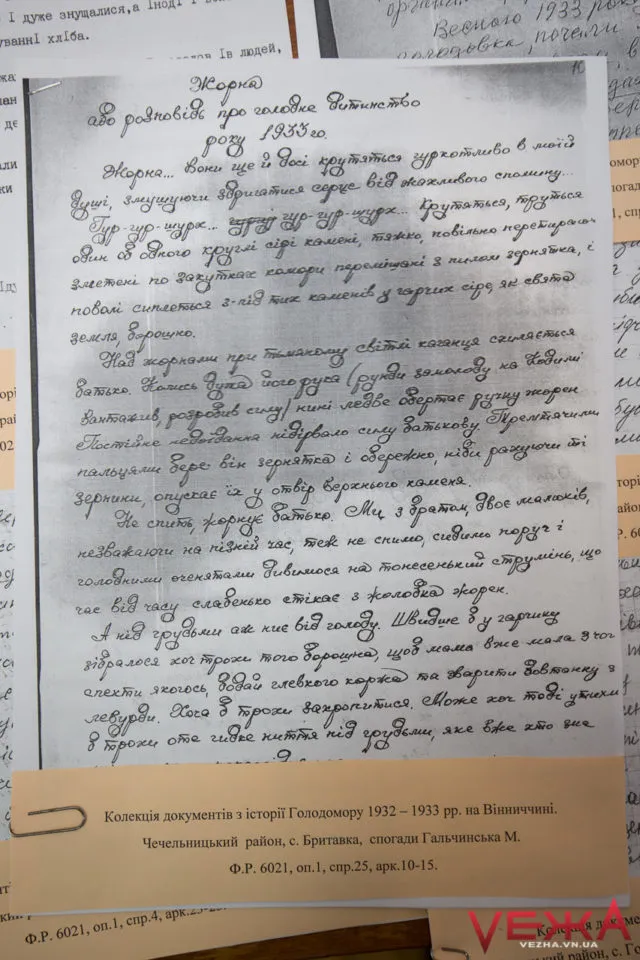 і дуже знущалися, а іноді і
уванні хліба.
Ів людей,
Весною 1933 року
Жорна
або розповідь про голодне дитинство
року 1933го.
Жорна... Вони ще й досі крутяться гуркотливо в моїй
душі, змушуючи здригатися серце від жахливого спомину...
Гур-гур-шурх... гур-гур-шурх... Крутяться, труться
один об одного круглі сірі камені, тяжко, повільно перетираю
зметені по закутках комори перемішані з пилом зернятка, і
поволі сиплеться з-під тих каменів у гарчик сіре, як свята
земля, борошно.
Над жорнами при тьмяному світлі каганця схиляється
батько. Колись дужа його рука (рунди замолоду на Кодимі
вантажив, розробив силу) нині ледве обертає ручку жорен
Постійне недоїдання підірвало силу батькову. Тремтячими
пальцями бере він зернятка і обережно, ніби рахуючи ті
зернини, опускає їх у отвір верхнього каменя.
Не спить, жорнує батько. Ми з братом, двоє малюків,
незважаючи на пізній час, теж не спимо, сидимо поруч і
голодними оченятами дивимося на тонесенький струмінь, що
час від часу слабенько стікає з жолобка жорен.
А під грудьми аж ниє від голоду. Швидше б у гарчику
зібралося хоч трохи того борошна, щоб мама вже мала з чог
спекти якогось, бодай глевкого коржа та зварити бовтанку з
левурди. Хоча б трохи закропитися. Може хоч тоді утихи
б трохи оте гидке ниття під грудьми, яке вже хто зна
Колекція документів з історії Голодомору 1932 – 1933 рр. на Вінниччині.
Чечельницький район, с. Бритавка, спогади Гальчинська М.
Ф.Р. 6021, оп.1, спр.25, арк.10-15.
Ф.Р. 6021, оп.1, спр.4, арк.
Колекція докуме
район, с.
VЕЖА
VEZHA.VN.UA